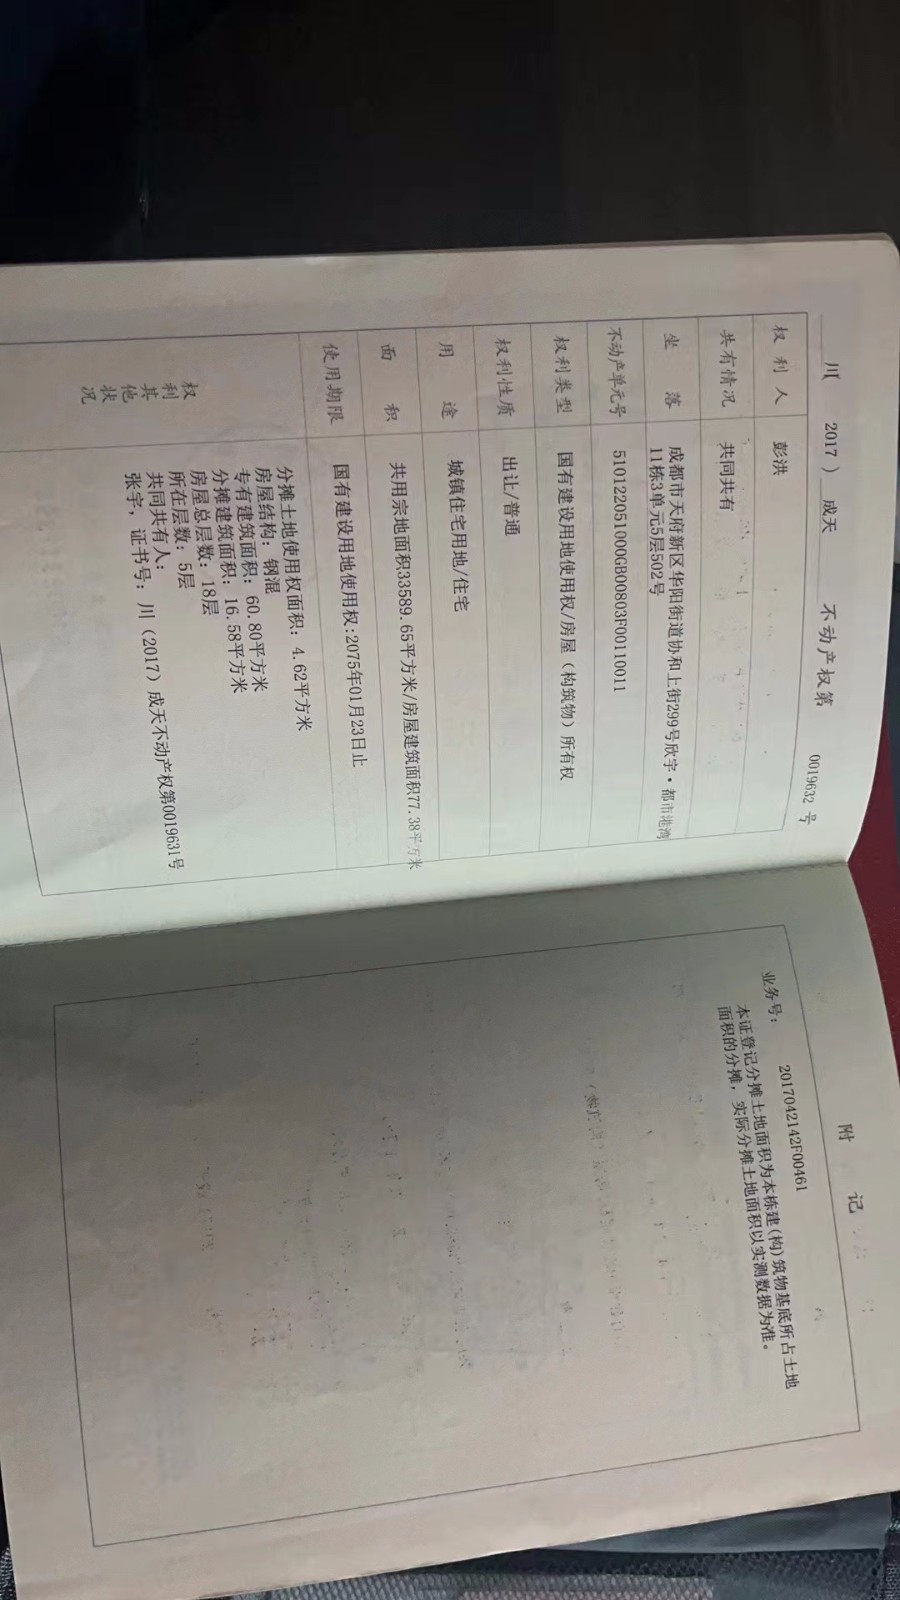 川( 2017 ) 成天 不动产权第 0019632 号
权利人 彭洪
共有情况 共同共有
坐落 成都市天府新区华阳街道协和上街299号欣宇·都市港湾
11栋3单元5层502号
不动产单元号 510122051000GB00803F00110011
权利类型 国有建设用地使用权/房屋(构筑物)所有权
权利性质 出让/普通
用途 城镇住宅用地/住宅
面积 共用宗地面积33589.65平方米/房屋建筑面积77.38平方米
使用期限 国有建设用地使用权:2075年01月23日止
权利其他状况
分摊土地使用权面积: 4.62平方米
房屋结构: 钢混
专有建筑面积: 60.80平方米
分摊建筑面积: 16.58平方米
房屋总层数: 18层
所在层数: 5层
共同共有人:
张宇, 证书号: 川(2017)成天不动产权第0019631号
附 记
业务号: 2017042142F00461
本证登记分摊土地面积为本栋建(构)筑物基底所占土地
面积的分摊, 实际分摊土地面积以实测数据为准。